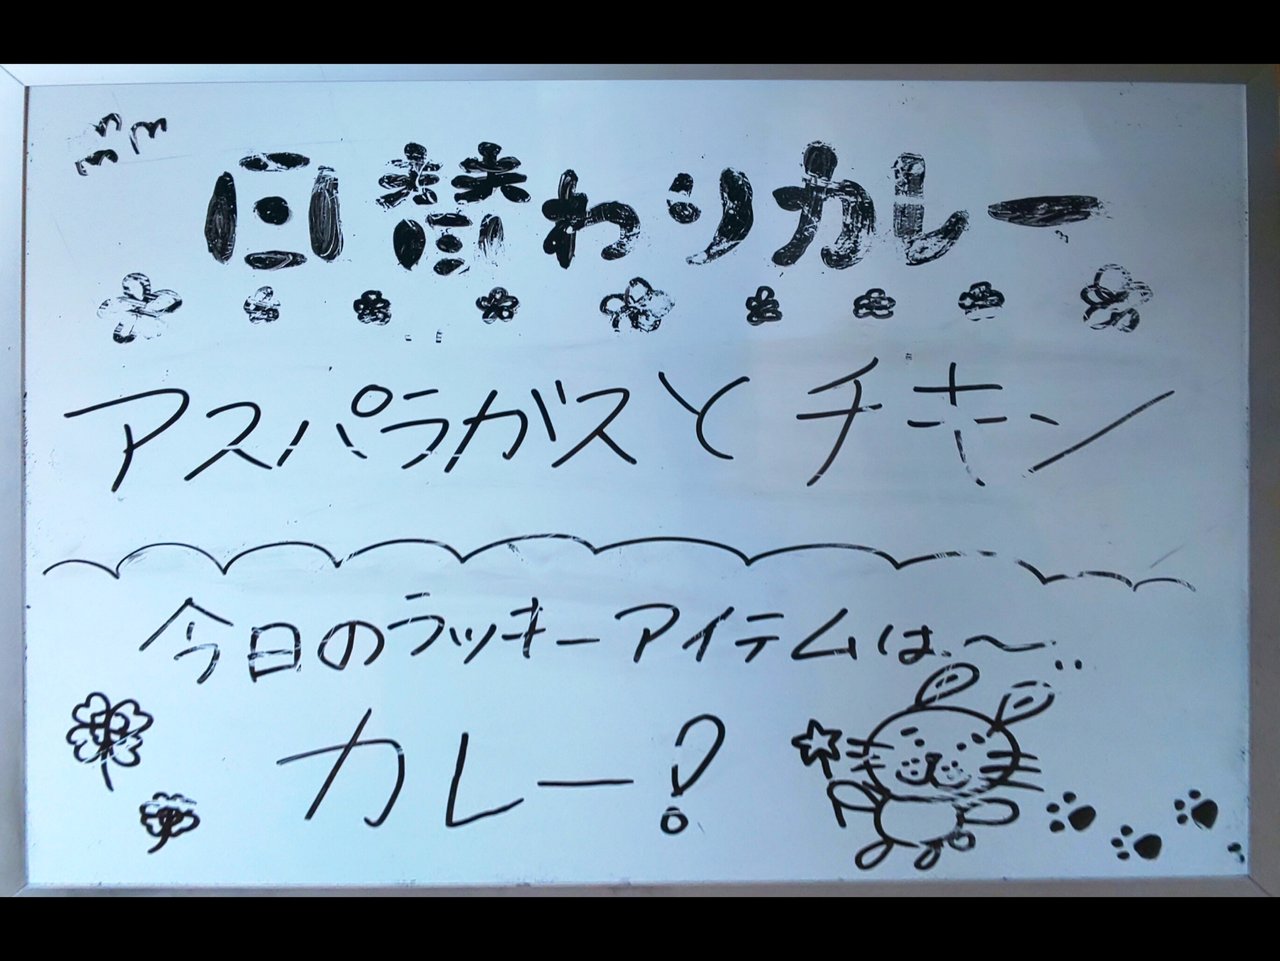 日替わりカレー
アスパラガスとチキン
今日のラッキーアイテムは〜..
カレー!